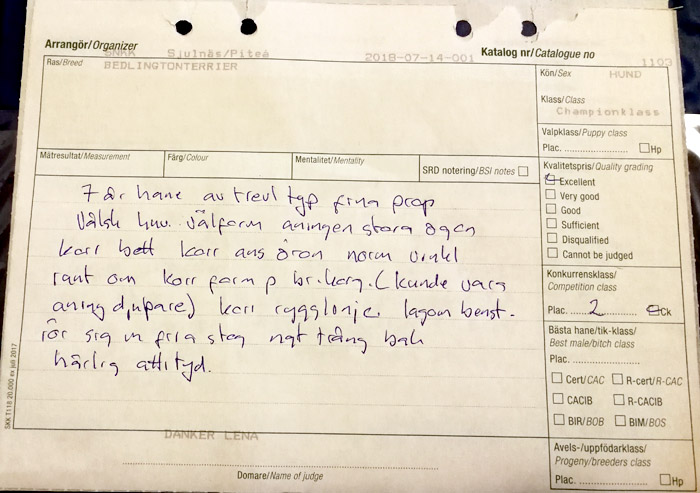 Arrangör/Organizer
SNKK Sjulnäs/Piteå 2018-07-14-001
Katalog nr/Catalogue no
1103
Ras/Breed
BEDLINGTONTERRIER
Kön/Sex HUND
Klass/Class
Championklass
Valpklass/Puppy class
Plac. Hp
Mätresultat/Measurement
Färg/Colour
Mentalitet/Mentality
SRD notering/BSI notes
Kvalitetspris/Quality grading
Excellent
Very good
Good
Sufficient
Disqualified
Cannot be judged
7 år hane av trevl typ fina prop
välsk huv. välform aningen stora ögon
korr bett korr ans öron norm vinkl
runt om korr form p br.korg. (kunde vara
aning djupare) korr rygglinje lagom benst.
rör sig m fria steg ngt trång bak
härlig attityd.
Konkurrensklass/
Competition class
Plac. 2 Ck
Bästa hane/tik-klass/
Best male/bitch class
Plac.
Cert/CAC R-cert/R-CAC
CACIB R-CACIB
BIR/BOB BIM/BOS
Avels-/uppfödarklass/
Progeny/breeders class
Plac. Hp
DANKER LENA
Domare/Name of judge
SKK T118 20.000 ex juli 2017